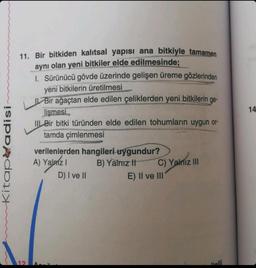 11. Bir bitkiden kalıtsal yapısı ana bitkiyle tamamen
aynı olan yeni bitkiler elde edilmesinde;
I. Sürünücü gövde üzerinde gelişen üreme gözlerinden
yeni bitkilerin üretilmesi
II. Bir ağaçtan elde edilen çeliklerden yeni bitkilerin ge-
lişmesi
III. Bir bitki türünden elde edilen tohumların uygun or-
tamda çimlenmesi
verilenlerden hangileri uygundur?
A) Yalnız I B) Yalnız II C) Yalnız III
D) I ve II E) II ve III
KitapVadisi
14
12